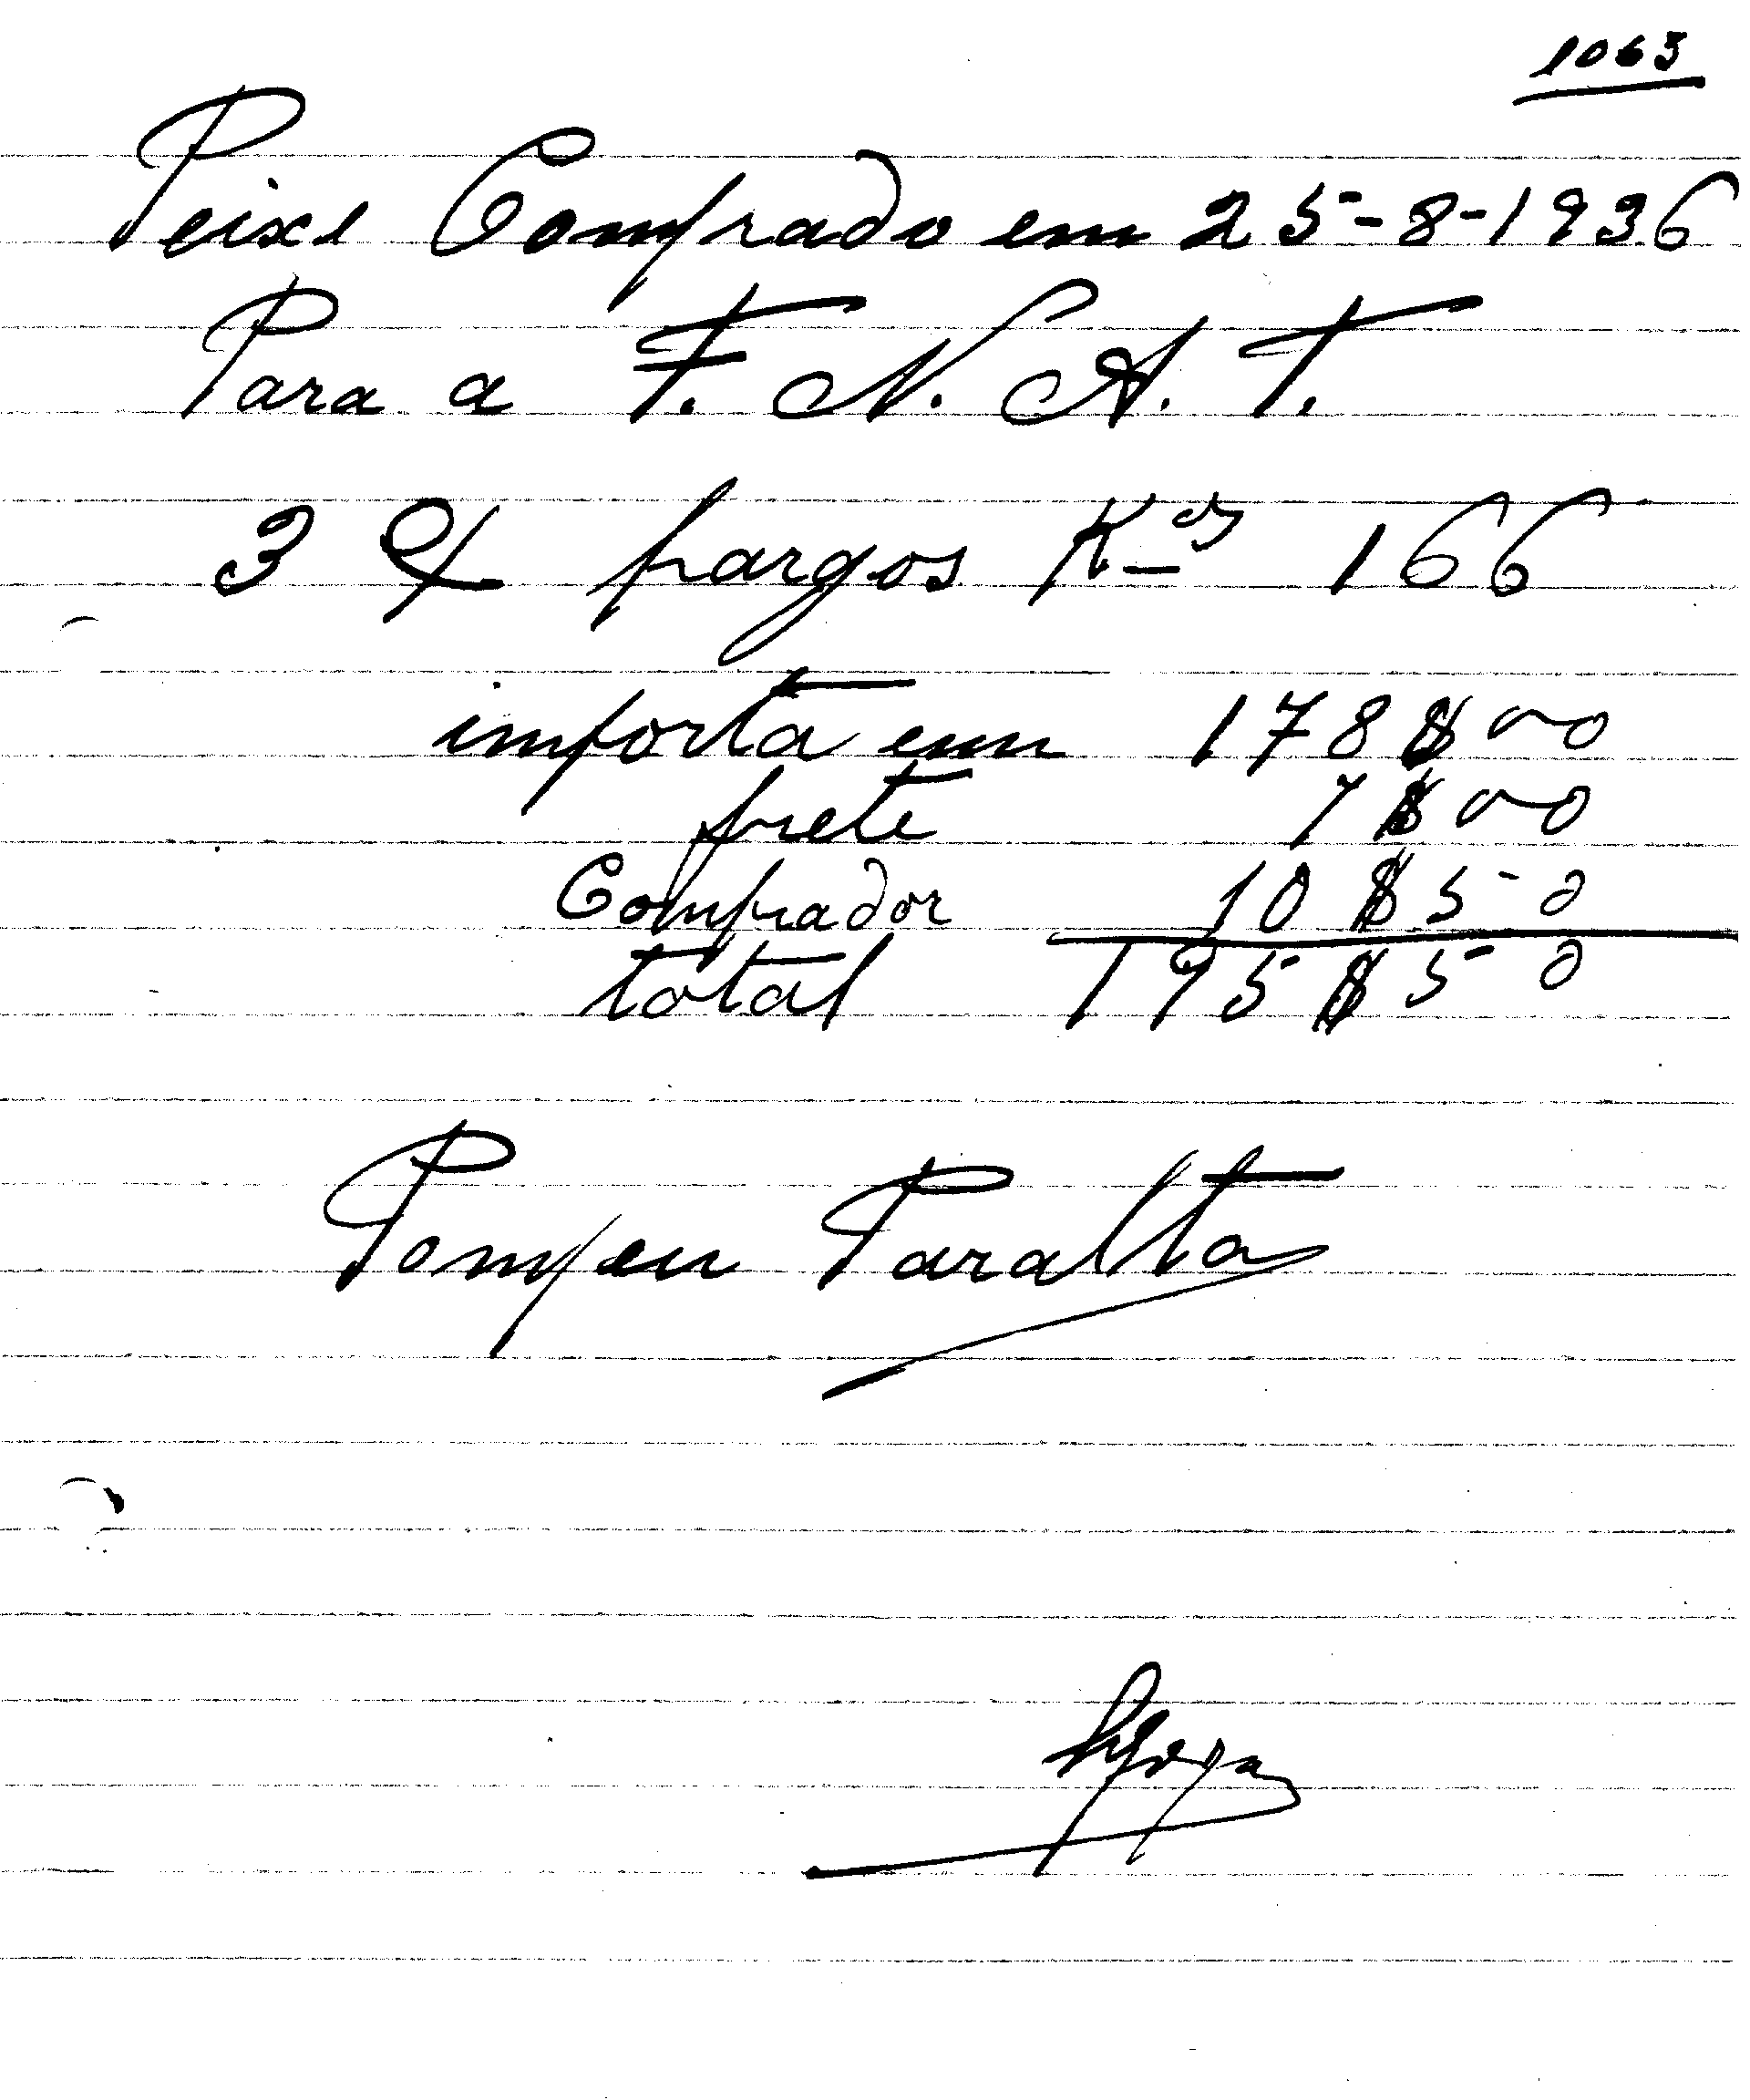 1063
Peixe Comprado em 25-8-1936
Para a F. N. A. T.
3 pargos K.os 166
importa em 178$00
frete 7$00
Comprador 10$50
total 195$50
Pompeu Paralta